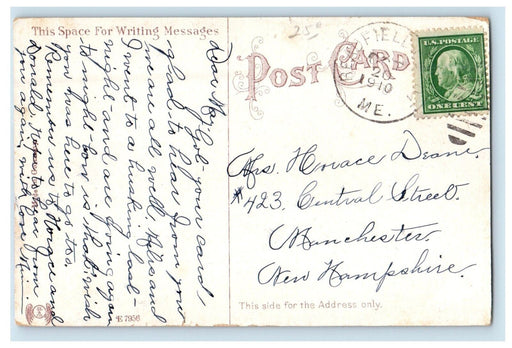 This Space For Writing Messages
Dear May, Got your card,
glad to hear from you
we are all well. Miles and
I went to a husking last
night and are going again
to night how is that. wish
you was here to go to.
Remember us to Horace and
Donald. Hope to hear from
you again, with love
25¢
POST CARD
FIELD
1910
ME.
U.S. POSTAGE
ONE CENT
Mrs. Horace Deane.
#423. Central Street.
Manchester.
New Hampshire.
This side for the Address only.
E 7956